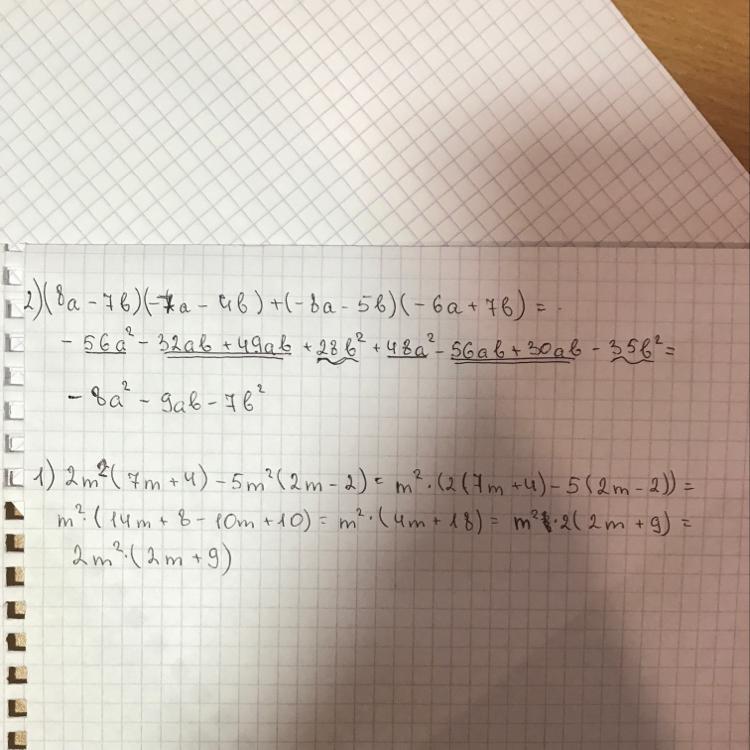 2) (8a - 7b)(-7a - 4b) + (-8a - 5b)(-6a + 7b) =
- 56a² - 32ab + 49ab + 28b² + 48a² - 56ab + 30ab - 35b² =
- 8a² - 9ab - 7b²
1) 2m²(7m + 4) - 5m²(2m - 2) = m²·(2(7m + 4) - 5(2m - 2)) =
m²·(14m + 8 - 10m + 10) = m²·(4m + 18) = m²·2(2m + 9) =
2m²·(2m + 9)